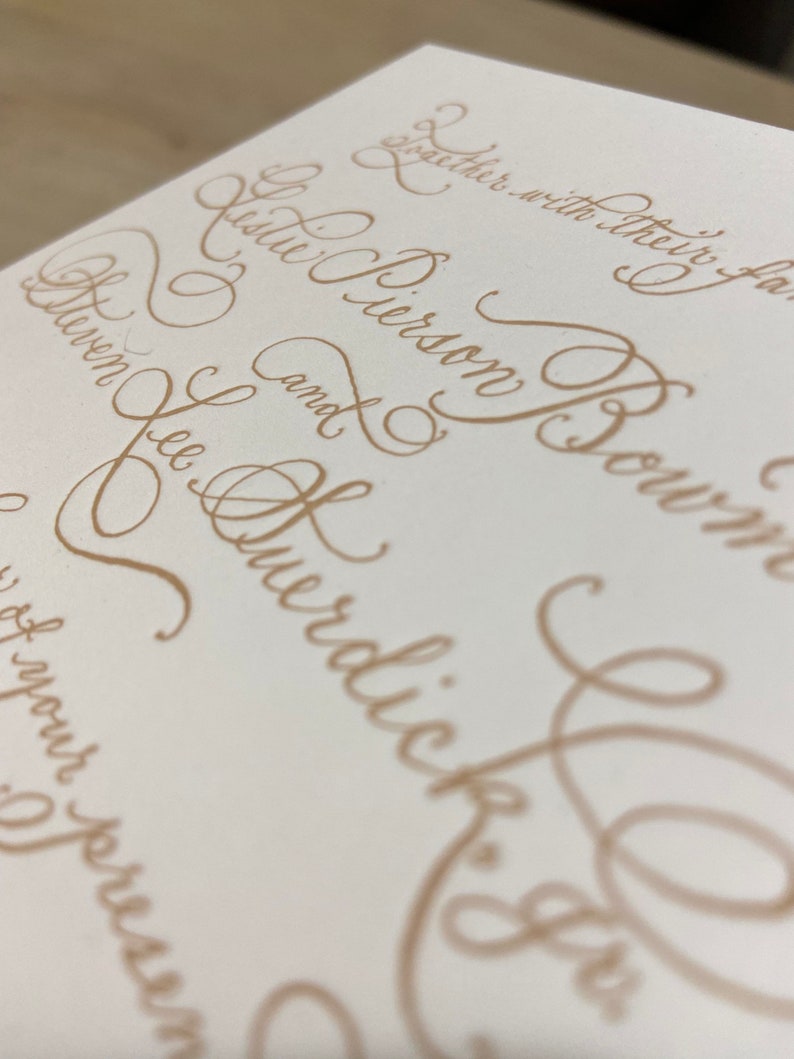 Together with their fa
Leslie Pierson Bowm
and
Steven Lee Stuerdick, jr.
of your presen